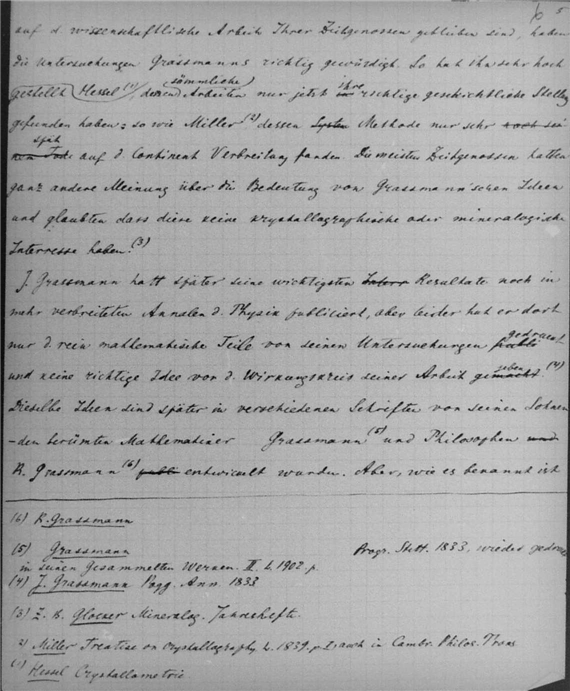 6 5
auf d. wissenschaftliche Arbeit Ihrer Zeitgenossen geblieben sind, haben
die Untersuchungen Grassmanns richtig gewürdigt. So hat ihn sehr hoch
sämmtliche ihre
gestellt Hessel (1), dessen Arbeiten nur jetzt richtige geschichtliche Stellung
gefunden haben: so wie Miller (2) dessen System Methode nur sehr
spät
auf d. Continent Verbreitung fanden. Die meisten Zeitgenossen hatten
ganz andere Meinung über die Bedeutung von Grassmann'schen Ideen
und glaubten dass diese keine krystallographische oder mineralogische
Interresse haben. (3)
J. Grassmann hatt später seine wichtigsten Resultate noch in
mehr verbreiteten Annalen d. Physik publiciert, aber leider hat er dort
gedruckt
nur d. rein mathematische Teile von seinen Untersuchungen
geben
und keine richtige Idee von d. Wirkungskreis seiner Arbeit gemacht. (4)
Dieselbe Ideen sind später in verschiedenen Schriften von seinen Sohnen
- den berümten Mathematiker Grassmann (5) und Philosophen und
R. Grassmann (6) entwickelt wurden. Aber, wie es benannt ist
(6) R. Grassmann
(5) Grassmann Progr. Stett. 1833, wieder gedruckt
in seinen Gesammelten Werken. II. L. 1902. p.
(4) J. Grassmann Pogg. Ann. 1833
(3) Z. B. Glocker Mineralog. Jahreshefte.
2) Miller Treatise on crystallography. L. 1839. p I auch in Cambr. Philos. Trans.
(1) Hessel Crystallometrie